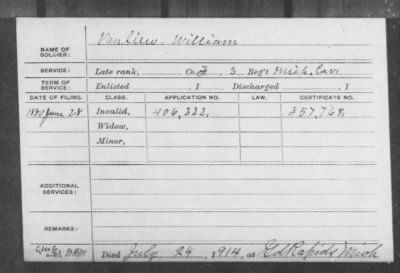 NAME OF SOLDIER: Vanliew, William
SERVICE: Late rank, Co. F, 3 Reg't Mich. Cav.
TERM OF SERVICE: Enlisted , 1 Discharged , 1
DATE OF FILING. CLASS. APPLICATION NO. LAW. CERTIFICATE NO.
1880 June 28 Invalid, 406,222. 357,768.
Widow,
Minor,
ADDITIONAL SERVICES:
REMARKS:
Died July 24, 1914, at Ed Rapids Mich